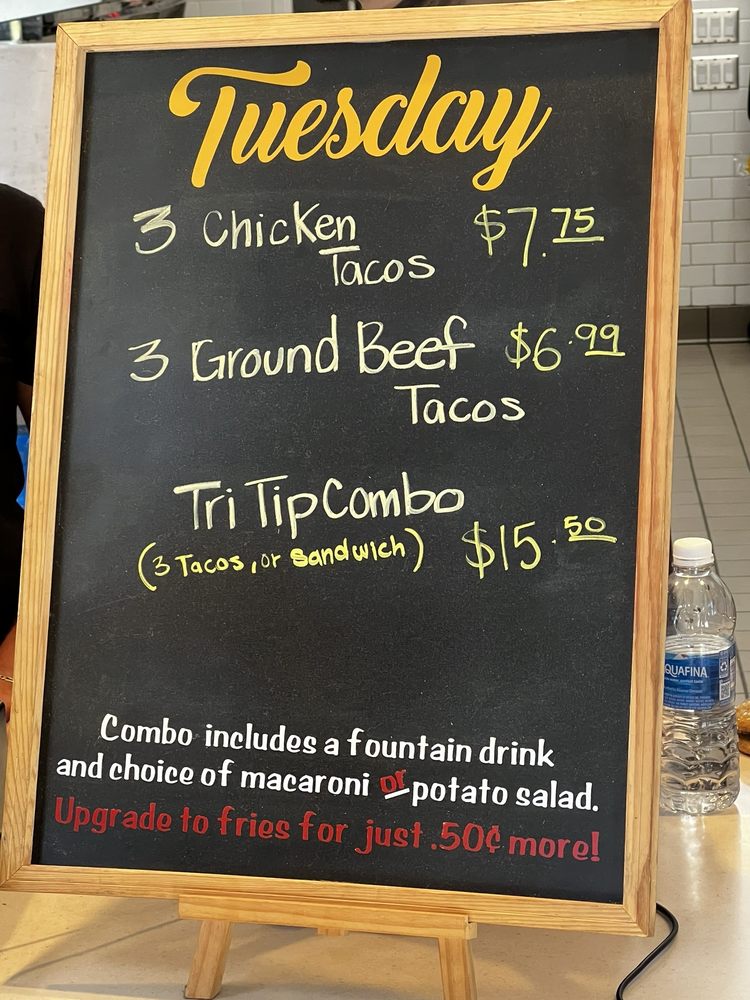 Tuesday
3 Chicken $7.75
Tacos
3 Ground Beef $6.99
Tacos
Tri Tip Combo
(3 Tacos, or Sandwich) $15.50
Combo includes a fountain drink
and choice of macaroni or potato salad.
Upgrade to fries for just .50¢ more!
QUAFINA